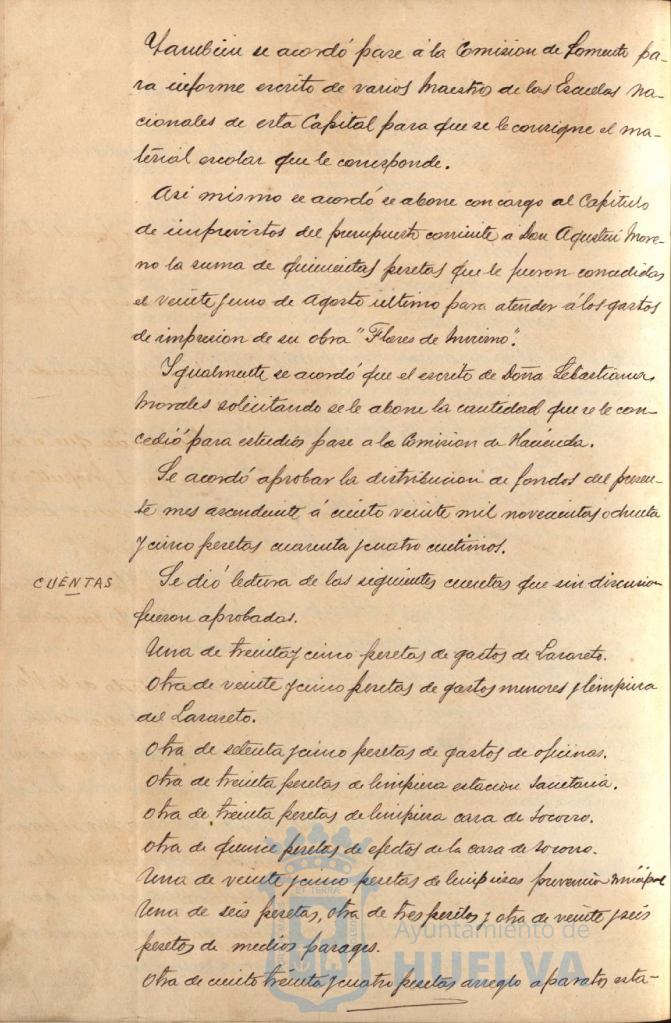 Tambien se acordó pase á la Comision de Fomento pa-
ra informe escrito de varios Maestros de las Escuelas Na-
cionales de esta Capital para que se le consigne el ma-
terial escolar que le corresponde.
Asi mismo se acordó se abone con cargo al Capitulo
de imprevistos del presupuesto corriente á Don Agustin More-
no la suma de quinientas pesetas que le fueron concedidas
el veinte y uno de Agosto ultimo para atender á los gastos
de impresion de su obra "Flores de
Igualmente se acordó que el escrito de Doña Sebastiana
Morales solicitando se le abone la cantidad que se le con-
cedió para estudios pase a la Comision de Hacienda.
Se acordó aprobar la distribucion de fondos del presen-
te mes ascendente á ciento veinte mil novecientas ochenta
y cinco pesetas cuarenta y cuatro centimos.
CUENTAS
Se dió lectura de las siguientes cuentas que sin discusion
fueron aprobadas.
Una de treinta y cinco pesetas de gastos de Lazareto.
Otra de veinte y cinco pesetas de gastos menores y limpieza
del Lazareto.
Otra de setenta y cinco pesetas de gastos de oficinas.
Otra de treinta pesetas de limpieza estacion Sanitaria.
Otra de treinta pesetas de limpieza casa de Socorro.
Otra de quince pesetas de efectos de la casa de Socorro.
Una de veinte y cinco pesetas de limpiezas prevencion
Una de seis pesetas, otra de tres pesetas y otra de veinte y seis
pesetas de medios parages.
Otra de ciento treinta y cuatro pesetas arreglo aparatos esta-
Ayuntamiento de
HUELVA